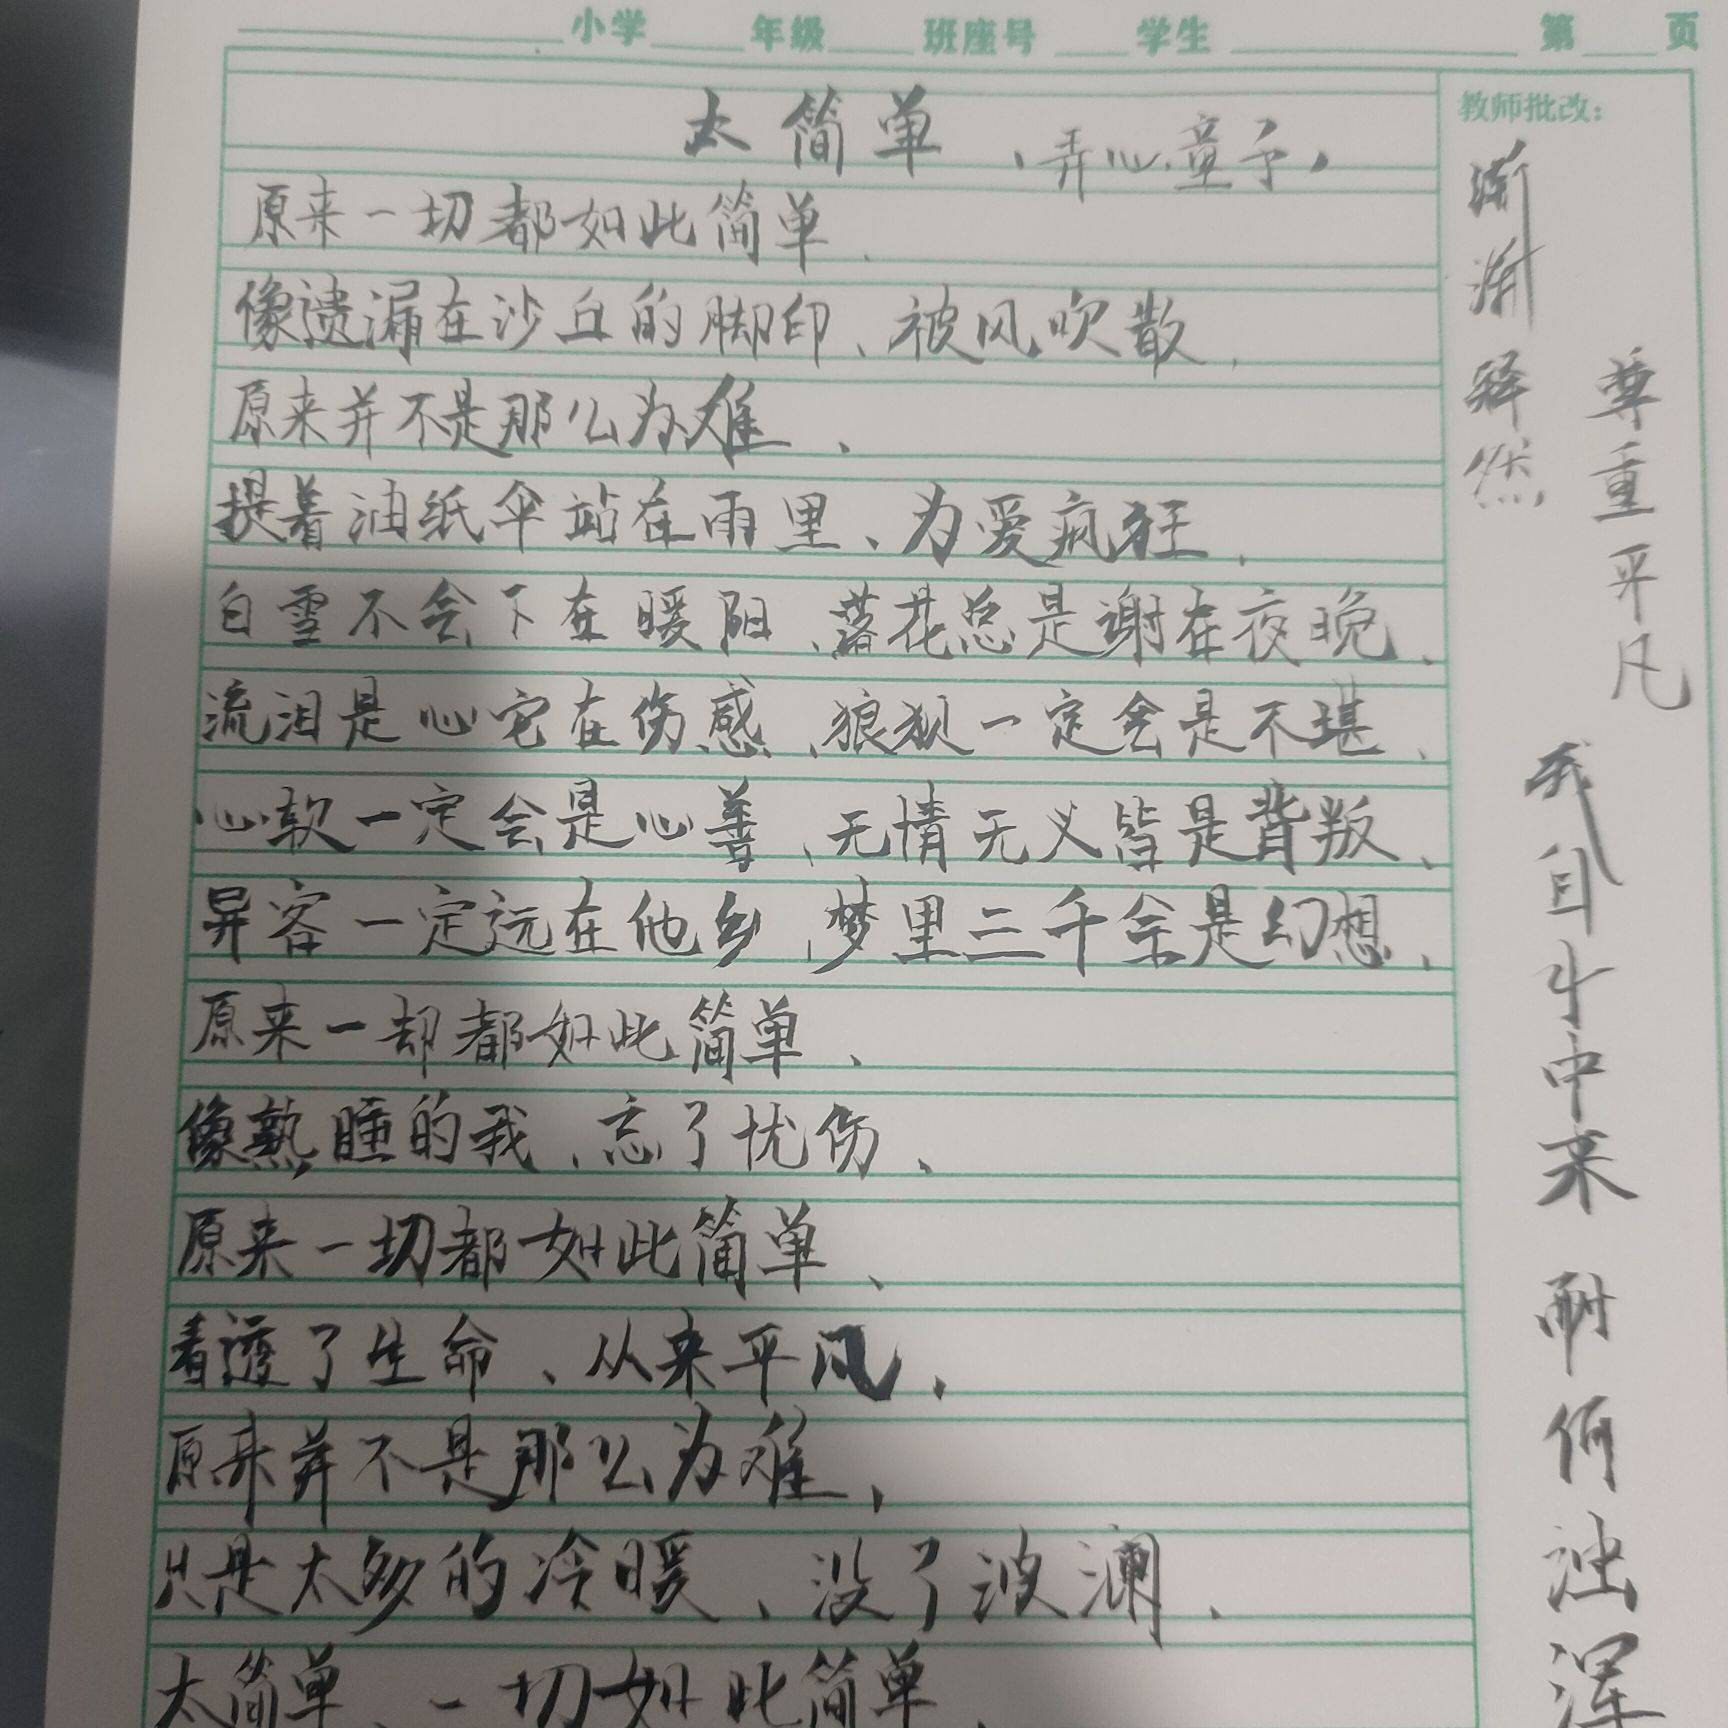 小学 年级 班座号 学生 第 页
太简单、弄心童子、
教师批改：
原来一切都如此简单、
像遗漏在沙丘的脚印、被风吹散、
原来并不是那么为难、
提着油纸伞站在雨里、为爱疯狂、
白雪不会下在暖阳、落花总是谢在夜晚、
流泪是心它在伤感、狼狈一定会是不堪、
心软一定会是心善、无情无义皆是背叛、
异客一定远在他乡、梦里三千余是幻想、
原来一却都如此简单、
像熟睡的我、忘了忧伤、
原来一切都如此简单、
看透了生命、从来平凡、
原来并不是那么为难、
只是太多的冷暖、没了波澜、
太简单、一切如此简单、
渐渐释然
尊重平凡
我自牛中来 耐何浊浑